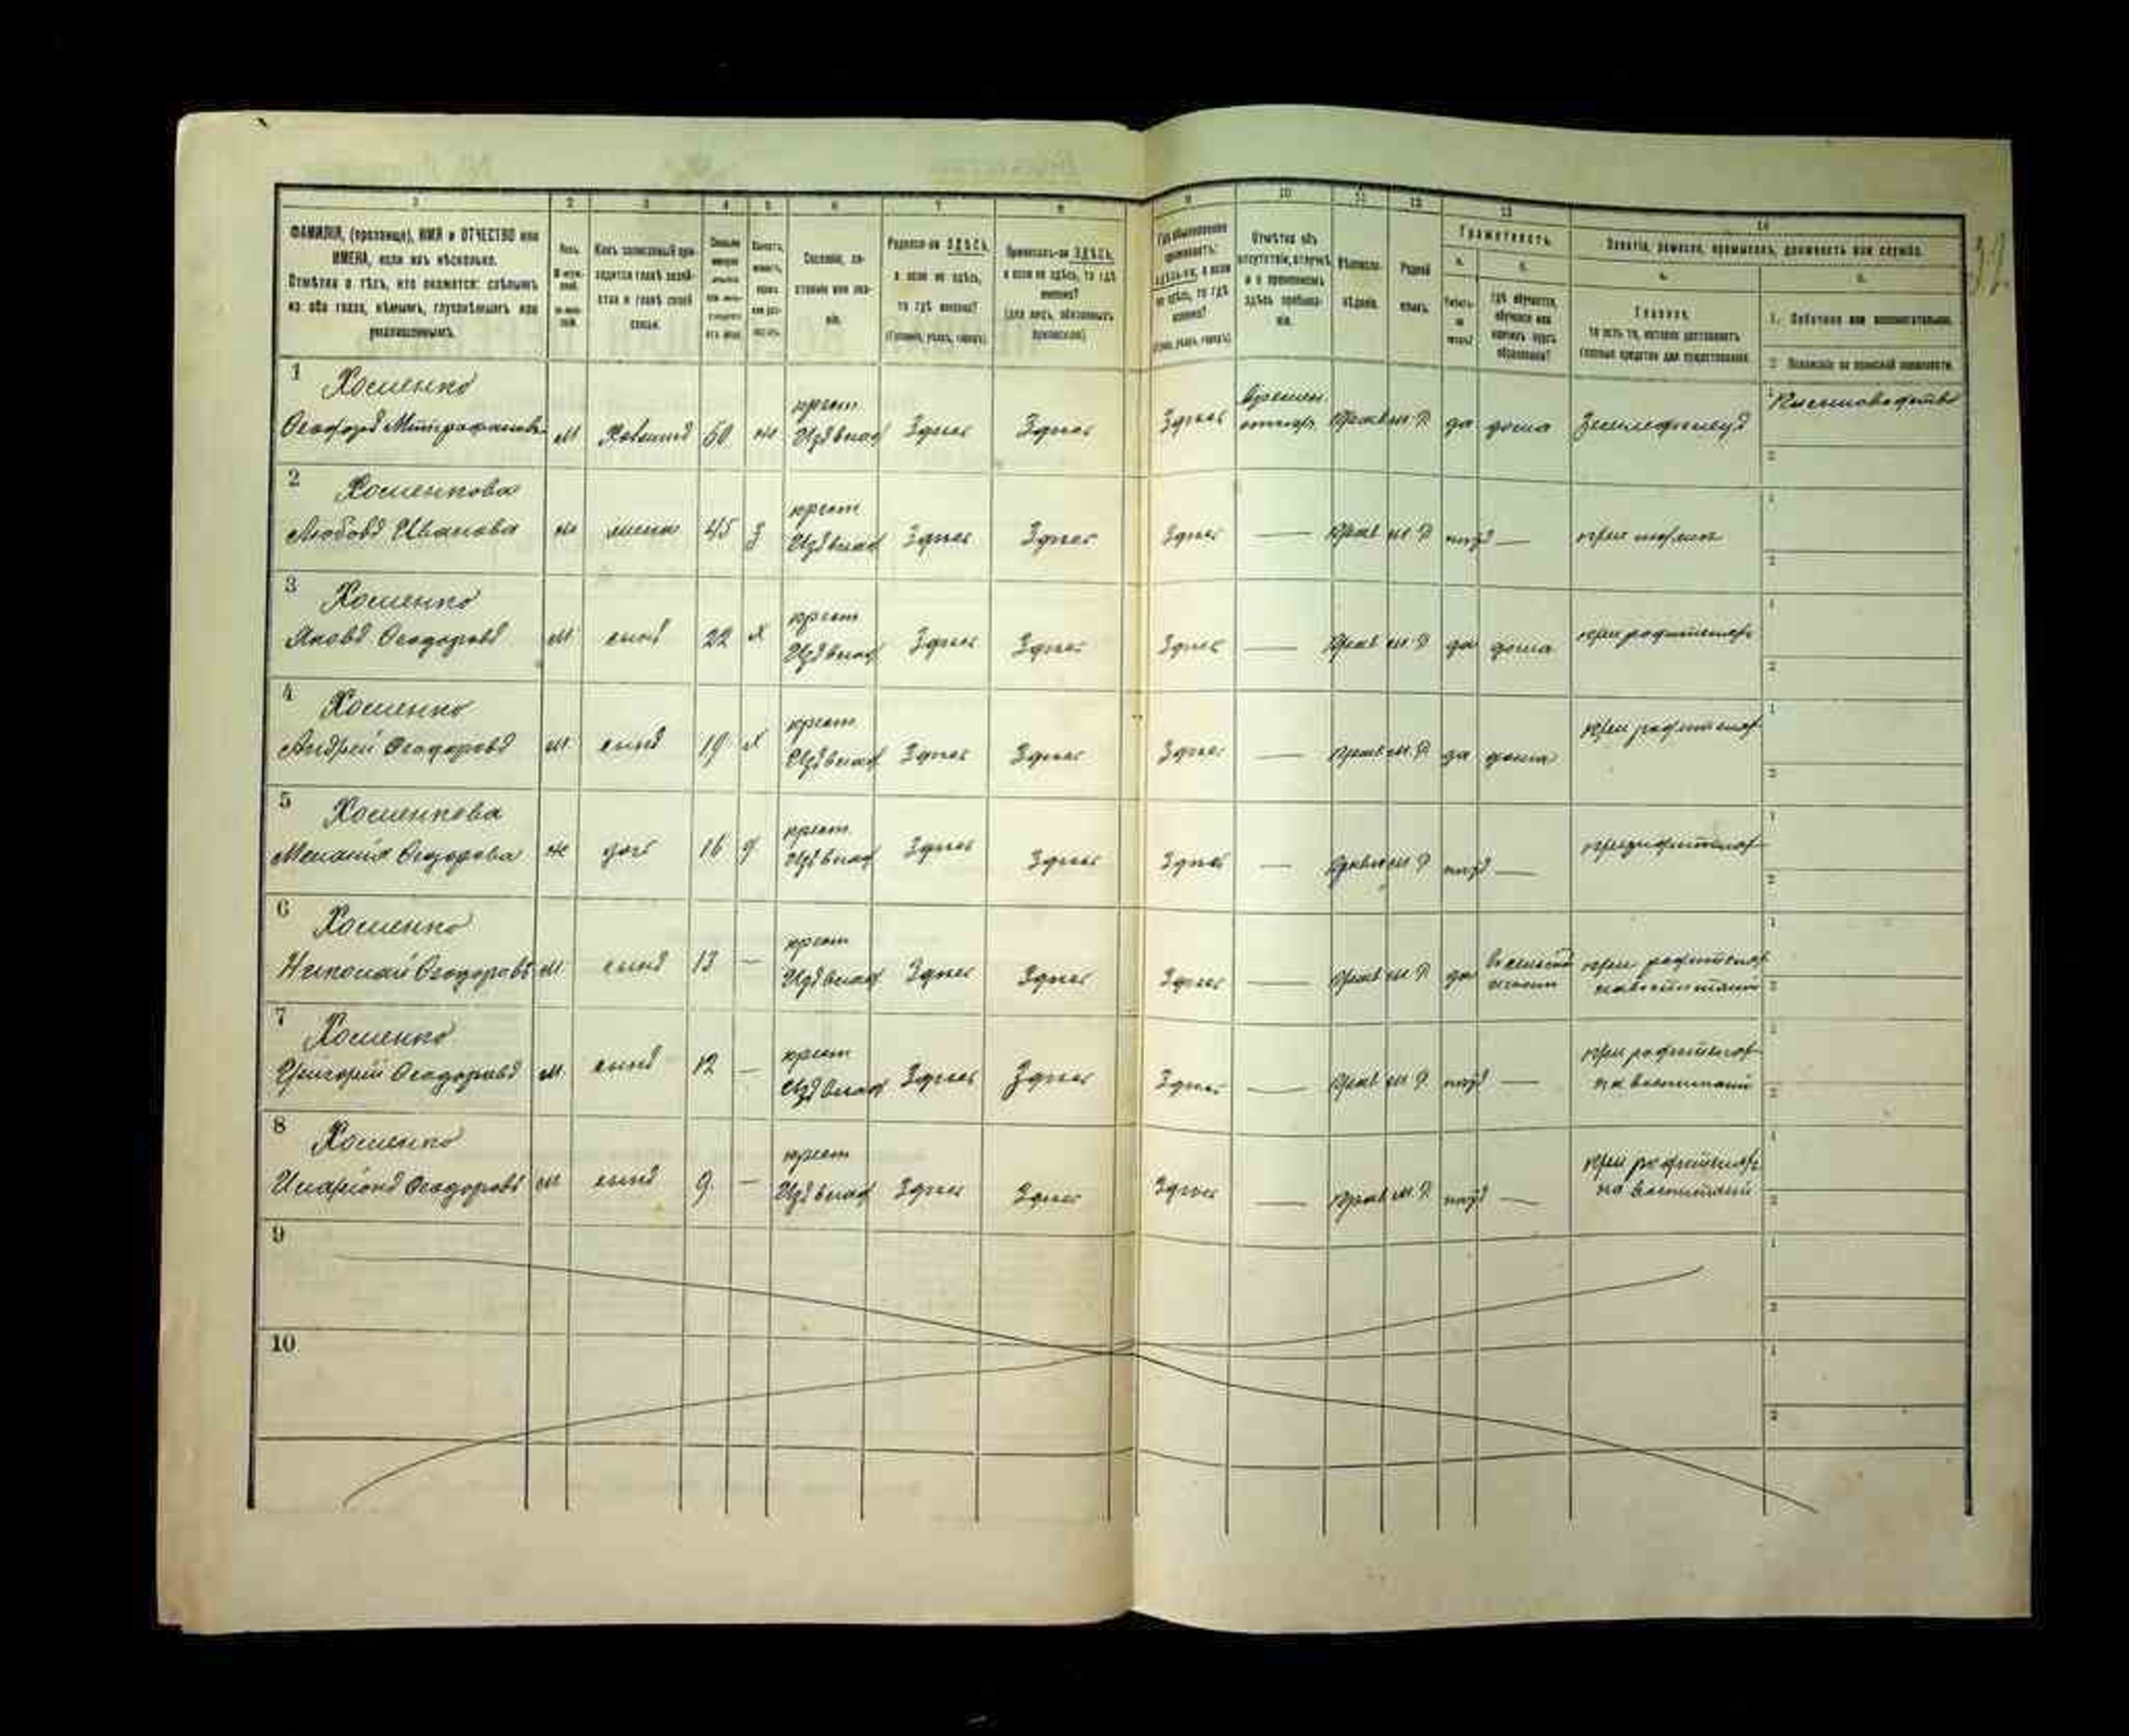 1 2 3 4 5 6 7 8 9 10 11 12 13 14
ФАМИЛІЯ, (прозвище), ИМЯ и ОТЧЕСТВО или
ИМЕНА, если ихъ нѣсколько.
Отмѣтка о тѣхъ, кто окажется: слѣпымъ
на оба глаза, нѣмымъ, глухонѣмымъ или
умалишеннымъ.
Полъ.
Какъ записанный при-
ходится главѣ хозяй-
ства и главѣ своей
семьи.
Сословіе, со-
стояніе или зва-
ніе.
Родился-ли ЗДѢСЬ,
а если не здѣсь,
то гдѣ именно?
(Губернія, уѣздъ, городъ)
Приписанъ-ли ЗДѢСЬ,
а если не здѣсь, то гдѣ
именно?
(для лицъ, обязанныхъ
припиской)
Гдѣ обыкновенно
проживаетъ:
здѣсь-ли, а если
не здѣсь, то гдѣ
именно?
(Губернія, уѣздъ, городъ)
Отмѣтка объ
отсутствіи, отлучкѣ
и о временномъ
здѣсь пребыва-
ніи.
Вѣроиспо-
вѣданіе.
Родной
языкъ.
Грамотность.
а. б.
Умѣетъ-
ли
читать?
гдѣ обучается,
обучался или
кончилъ курсъ
образованія?
Занятіе, ремесло, промыселъ, должность или служба.
а. б.
Главное,
то есть то, которое доставляетъ
главныя средства для существованія.
1. Побочное или вспомогательное.
2. Положеніе по воинской повинности.
1 Хоменко
Ѳеодоръ Митрофановъ м хозяинъ 60 ж крест Изъ влад Здѣсь Здѣсь Здѣсь Времен отсут. Правл м.р да дома Земледѣлецъ 1 Пчеловодство
2
2 Хоменкова
Любовь Иванова ж жена 45 з крест Изъ влад Здѣсь Здѣсь Здѣсь — Прав м.р нѣтъ — при мужѣ 1
2
3 Хоменко
Яковъ Ѳеодоровъ м сынъ 22 х крест Изъ влад Здѣсь Здѣсь Здѣсь — Прав м.р да дома при родителяхъ 1
2
4 Хоменко
Андрей Ѳеодоровъ м сынъ 19 х крест Изъ влад Здѣсь Здѣсь Здѣсь — Прав м.р да дома при родителях 1
2
5 Хоменкова
Меланія Ѳеодорова ж дочь 16 д крест Изъ влад Здѣсь Здѣсь Здѣсь — Прав м.р нѣтъ — при родителях 1
2
6 Хоменко
Николай Ѳеодоровъ м сынъ 13 — крест Изъ влад Здѣсь Здѣсь Здѣсь — Прав м.р да при родителях 1
2
7 Хоменко
Григорій Ѳеодоровъ м сынъ 12 — крест Изъ влад Здѣсь Здѣсь Здѣсь — Прав м.р нѣтъ — при родителях на воспитаніи 1
2
8 Хоменко
Иларіонъ Ѳеодоровъ м сынъ 9 — крест Изъ влад Здѣсь Здѣсь Здѣсь — Прав м.р нѣтъ — при родителях на воспитаніи 1
2
9 1
2
10 1
2